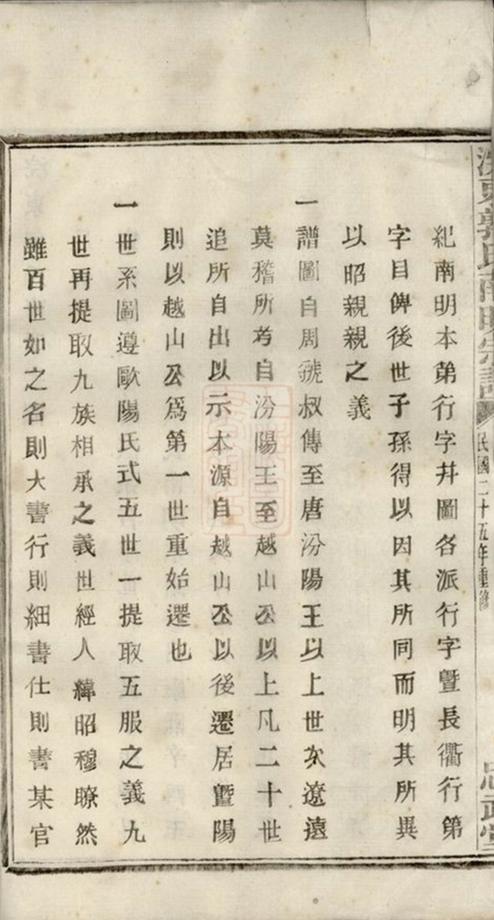 郭氏
宗譜
民國二十五年重修
紀南明本第行字并圖各派行字暨長衢行第
字目俾後世子孫得以因其所同而明其所異
以昭親親之義
一譜圖自周虢叔傳至唐汾陽王以上世次遼遠
莫稽所考自汾陽王至越山公以上凡二十世
追所自出以示本源自越山公以後遷居暨陽
則以越山公爲第一世重始遷也
一世系圖遵歐陽氏式五世一提取五服之義九
世再提取九族相承之義世經人緯昭穆瞭然
雖百世如之名則大書行則細書仕則書某官